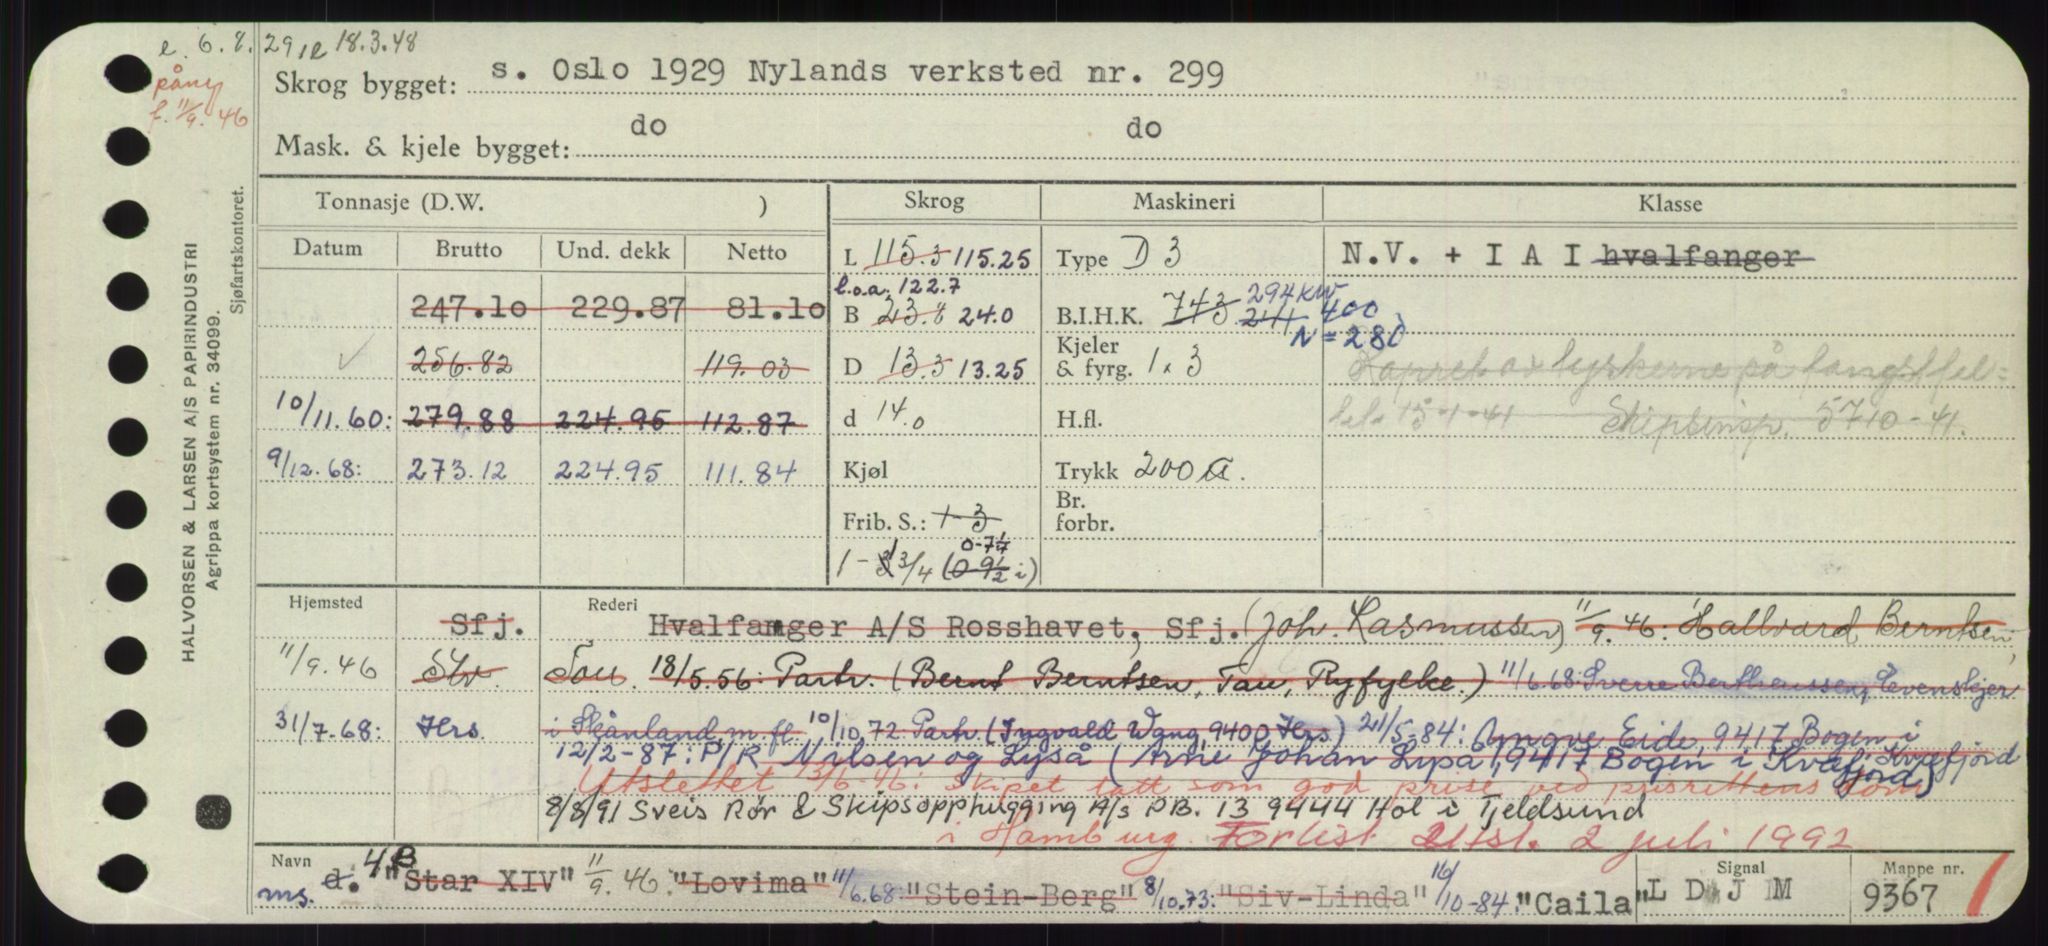 e. 6.8.29, e 18.3.48
påny
f. 11/9. 46
HALVORSEN & LARSEN A/S PAPIRINDUSTRI
Agrippa kortsystem nr. 34099.
Sjøfartskontoret.
Skrog bygget: s. Oslo 1929 Nylands verksted nr. 299
Mask. & kjele bygget: do do
Tonnasje (D.W. ) Skrog Maskineri Klasse
Datum Brutto Und. dekk Netto L 115.3 115.25 Type D 3 N.V. + I A I hvalfanger
l.o.a. 122.7
247.10 229.87 81.10 B 23.8 24.0 B.I.H.K. 743 211 294 kW 400
N = 280
✓ 256.82 119.03 D 13.3 13.25 Kjeler & fyrg. 1 x 3 Kapret av tyskerne på fangstfel=
10/11.60: 279.88 224.95 112.87 d 14.0 H.fl. 15-1-41 Skipsinsp. 5710-41.
9/12.68: 273.12 224.95 111.84 Kjøl Trykk 200
Br. forbr.
Frib. S.: 1-3
0-7
1 - 3 3/4 (0-9 1/2 i)
Hjemsted Sfj. Rederi Hvalfanger A/S Rosshavet, Sfj. (Joh. Rasmussen) 11/9. 46: Hallvard Berntsen,
11/9.46 Stv. Tau. 18/5.56: Partr. (Bernt Berntsen, Tau, Ryfylke.) 11/6.68: Sverre Bertheussen, Evenskjer
31/7-68: Hrs. i Skånland m fl. 10/10.72 Partr. (Ingvald Wang, 9400 Hrs) 21/5-84: Yngve Eide, 9417 Bogen i Kvæfjord
12/2-87: P/R Nilsen og Lyså (Arne Johan Lyså, 9417 Bogen i Kvæfjord)
Utslettet 13/6-46: Skipet tatt som god prise ved prisrettens dom
8/8/91 Sveis Rør & Skipsopphugging A/s P.B. 13 9444 Hol i Tjeldsund
i Hamburg. Forlist Utsl. 2 juli 1992
Navn ms. d. "Star XIV" 11/9. 46: "Lovima" 11/6.68: "Stein-Berg" 8/10.73: "Siv-Linda" 16/10-84: "Caila" Signal L D J M Mappe nr. 9367